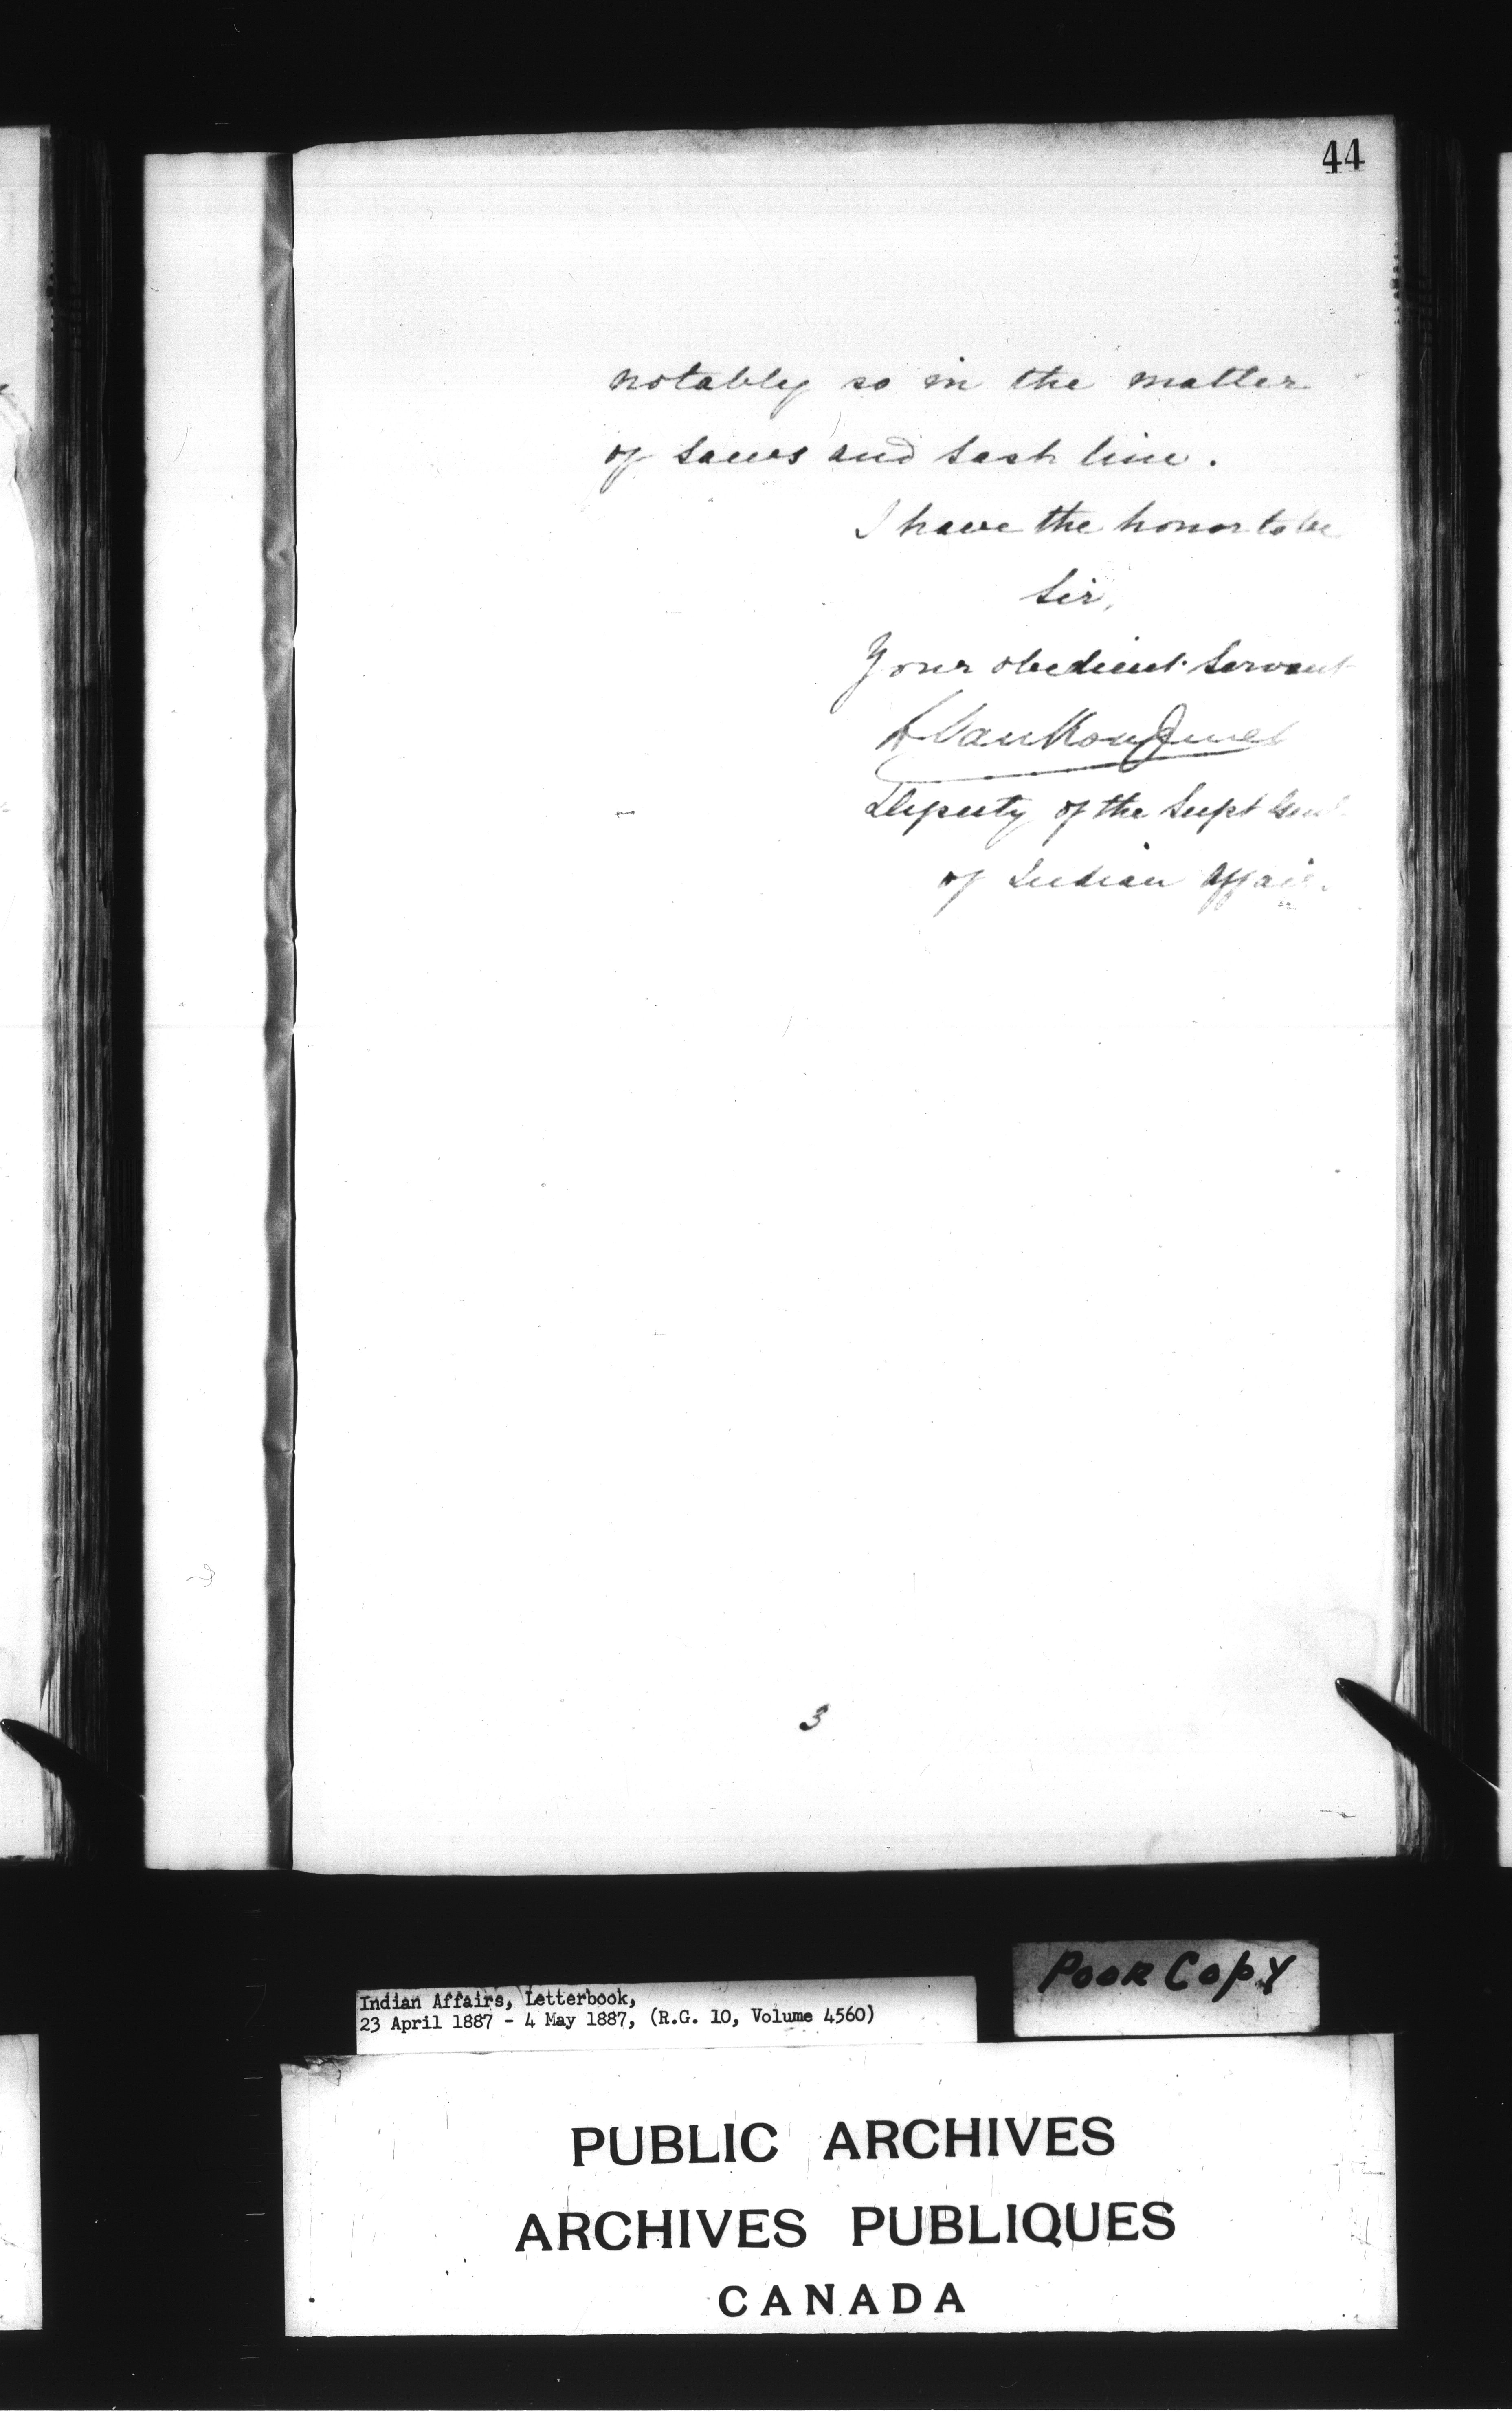 44
notably so in the matter
of saws and sash line.
I have the honor to be
Sir,
Your obedient Servant
L Vankoughnet
Deputy of the Supt Genl
of Indian Affairs.
3
Poor Copy
Indian Affairs, Letterbook,
23 April 1887 - 4 May 1887, (R.G. 10, Volume 4560)
PUBLIC ARCHIVES
ARCHIVES PUBLIQUES
CANADA